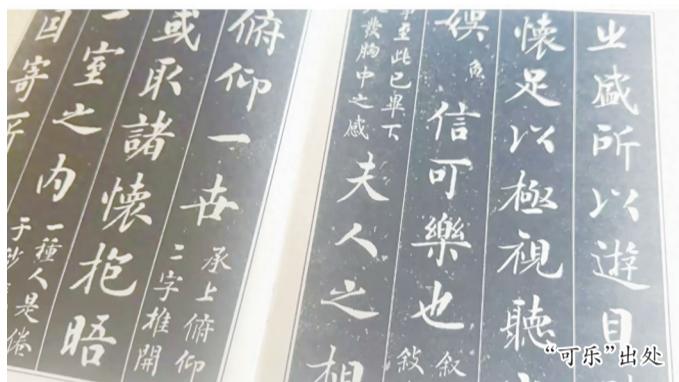 之盛所以遊目
懷足以極視聽
娛
信可樂也
事至此已畢下
文發胸中之感
夫人之相
俯仰一世
承上俯仰
二字推開
或取諸懷抱晤
一室之內
一種人是倦
于
因寄所
“可乐”出处